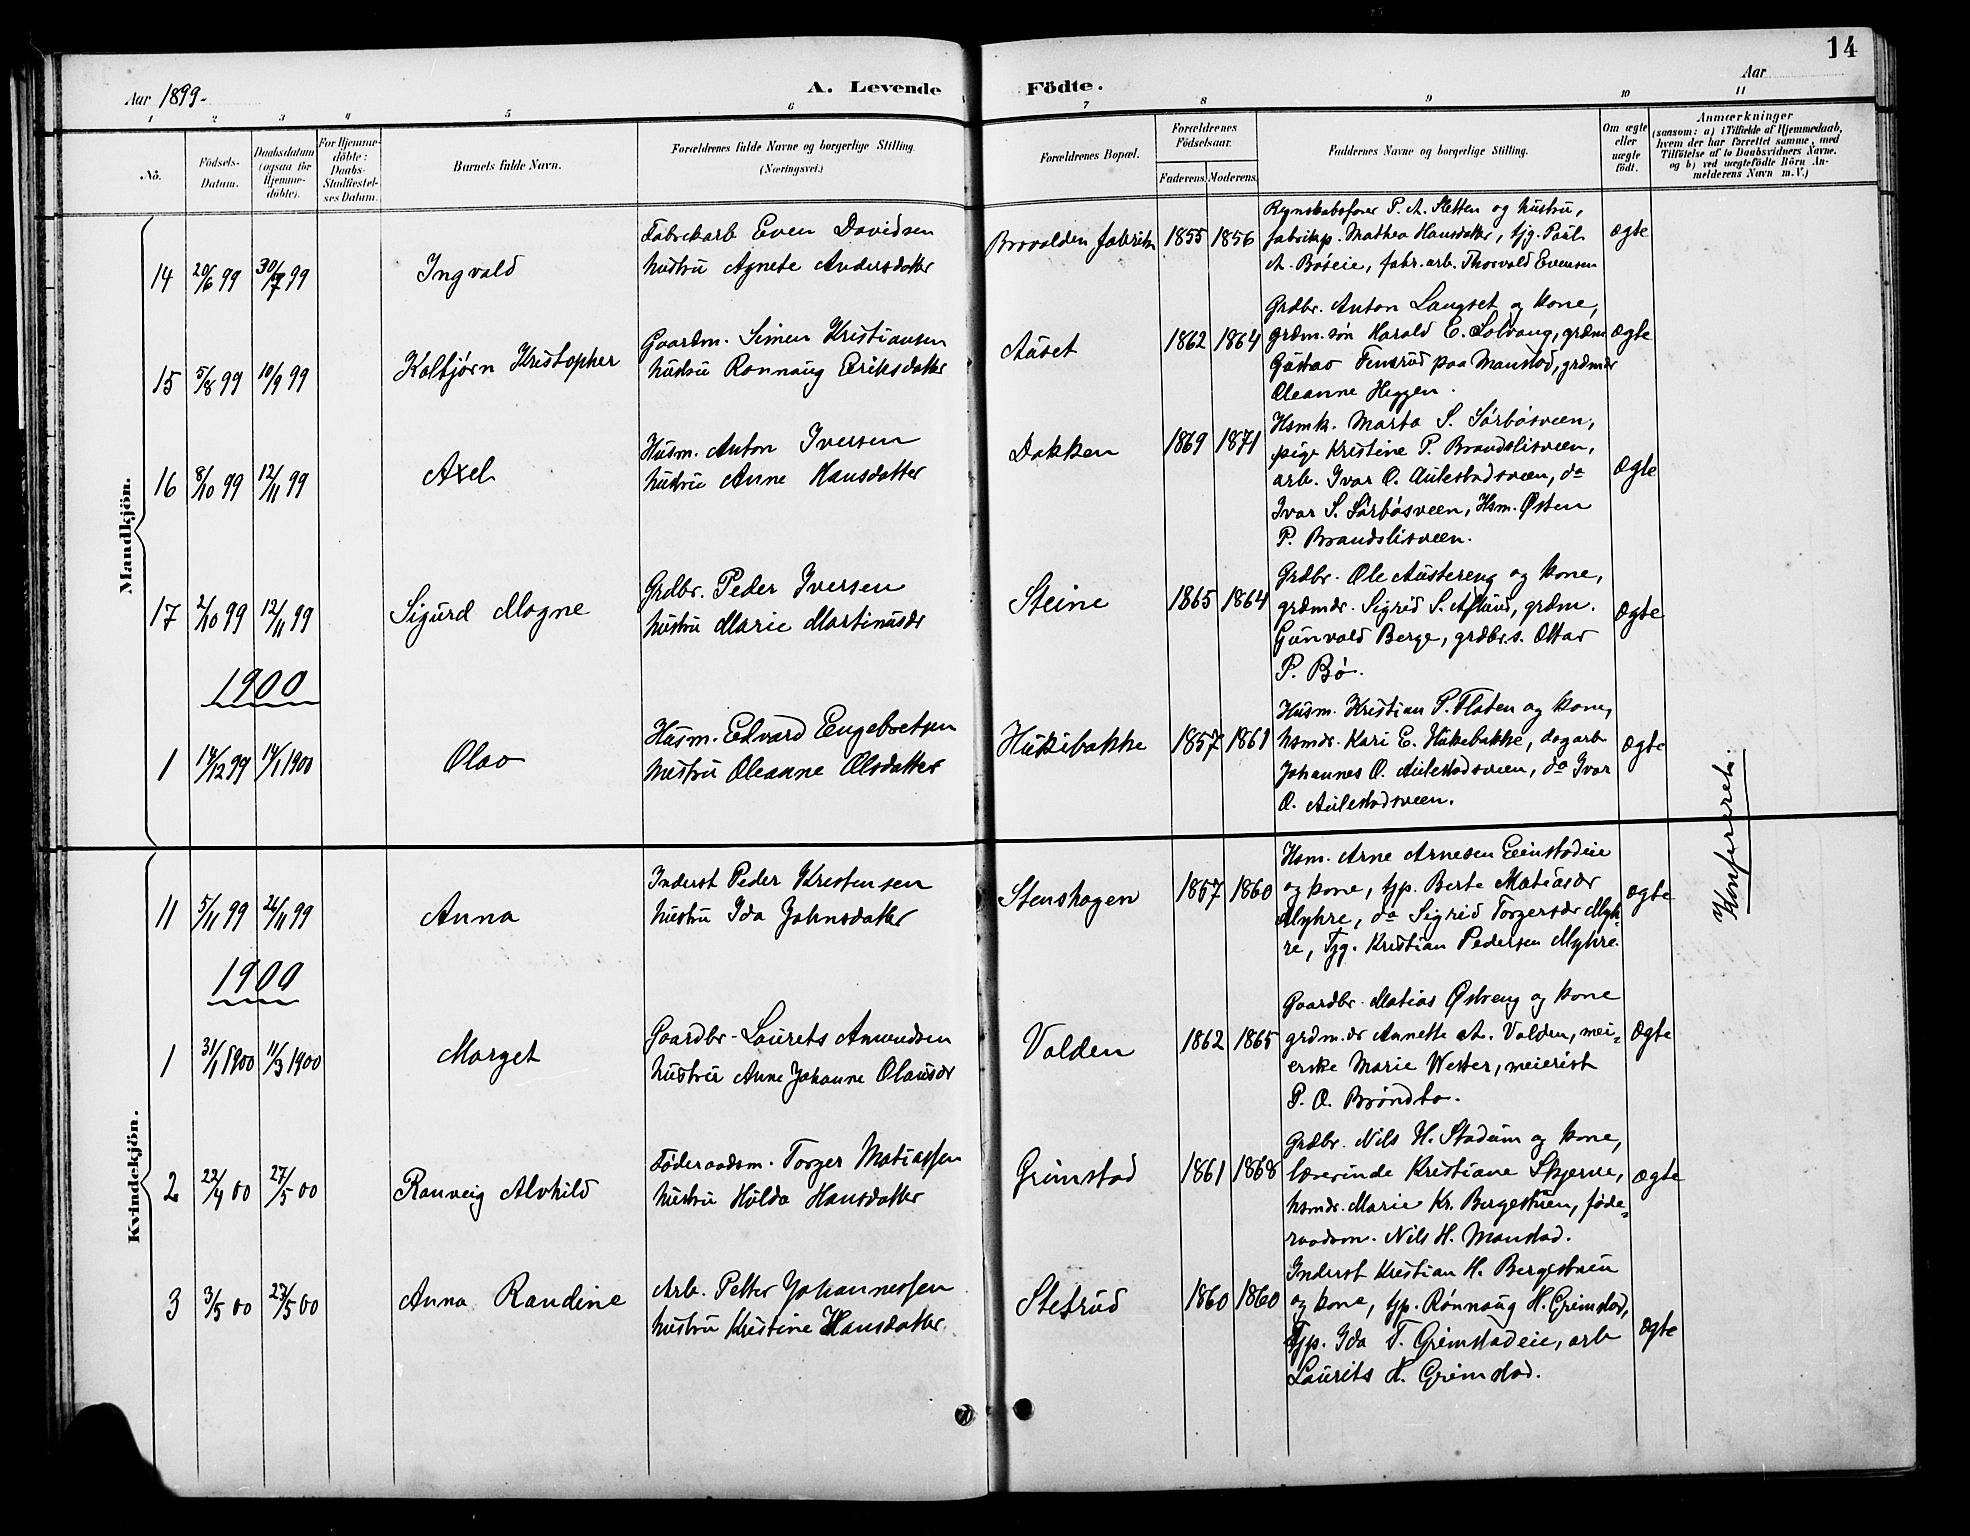 14
Aar 1899.
A. Levende Födte.
Aar
1 2 3 4 5 6 7 8 9 10 11
No.
Födsels-Datum.
Daabsdatum (ogsaa for Hjemme-döbte).
For Hjemme-döbte: Daabs-Stadfæstel-ses Datum.
Barnets fulde Navn.
Forældrenes fulde Navne og borgerlige Stilling (Næringsvei.)
Forældrenes Bopæl.
Forældrenes Födselsaar.
Faderens. Moderens.
Faddernes Navne og borgerlige Stilling.
Om ægte eller uægte födt.
Anmærkninger
(saasom: a) i Tilfælde af Hjemmedaab,
hvem der har forrettet samme, med
Tilföielse af to Daabsvidners Navne.
og b) ved uægtefödte Börn An-
melderens Navn m.V.)
Mandkjön.
14 20/6 99 30/7 99 Ingvald
Fabrikarb Even Davidsen
hustru Agnete Andersdatter
Brovolden fabrik 1855 1856
Regnskabsfører P. A. Sletten og hustru,
fabrikp. Mathea Hansdatter, tjg. Paul
A. Bøeie, fabr. arb. Thorvald Evensen
ægte
15 5/8 99 10/9 99 Kolbjørn Kristopher
Gaardm. Simen Kristiansen
hustru Rønnaug Eriksdatter
Auset 1862 1864
Grdbr. Anton Langset og kone,
grdm. søn Harald E. Solvang, grdm
Gustav Finsrud paa Manstad, grdmdr
Oleanne Heggen.
ægte
16 8/10 99 12/11 99 Axel
Husm. Anton Iversen
hustru Anne Hansdatter
Dakken 1869 1871
Hsmk. Marta S. Sørbøsveen,
pige Kristine P. Brandslisveen,
arb. Ivar O. Aulestadsveen, do
Ivar S. Sørbøsveen, Hsm. Østen
P. Brandslisveen.
ægte
17 2/10 99 12/11 99 Sigurd Magne
Grdbr. Peder Iversen
hustru Marie Martinusdr
Steine 1865 1864
Grdbr. Ole Austereng og kone,
grdmdr. Sigrid S. Aslund, grdm.
Gunvald Berge, grdbr.s. Ottar
P. Bø.
ægte
1900
1 14/12 99 14/1 1900 Olav
Husm. Edvard Engebretsen
hustru Oleanne Olsdatter
Hukebakke 1857 1861
Husm. Kristian P. Flaten og kone,
hsmdr. Kari E. Hukebakke, dagarb
Johannes O. Aulestadsveen, do Ivar
O. Aulestadsveen.
ægte
Konfereret:
Kvindekjön.
11 5/11 99 26/11 99 Anna
Inderst Peder Kristensen
hustru Ida Johnsdatter
Stenshagen 1857 1860
Hsm. Arne Arnesen Eeinstadeie
og kone, tjp. Berte Matiasdr
Myhre, do Sigrid Torgersdr Myh-
re, Tjg. Kristian Pedersen Myhre.
ægte
1900
1 31/1 1900 11/3 1900 Marget
Gaardbr. Laurets Amundsen
hustru Anne Johanne Olausdr
Volden 1862 1865
Gaardbr. Matias Østreng og kone
grdm.dr Annette A. Volden, mei-
erske Marie Wetter, meierist
P. O. Brøndbo.
ægte
2 22/4 00 27/5 00 Ranveig Alvhild
Føderaadsm. Torger Matiassen
hustru Hulda Hansdatter
Grimstad 1861 1868
Grdbr. Nils H. Stadum og kone,
lærerinde Kristiane Skjerve,
hsmdr. Marie Kr. Bergestuen, føde-
raadsm. Nils H. Manstad.
ægte
3 3/5 00 27/5 00 Anna Randine
Arb. Petter Johannessen
hustru Kristine Hansdatter
Stefrud 1860 1860
Inderst Kristian H. Bergestuen
og kone, tjp. Rønnaug H. Grimstad,
Tjp. Ida T. Grimstadeie, arb
Laurits H. Grimstad.
ægte